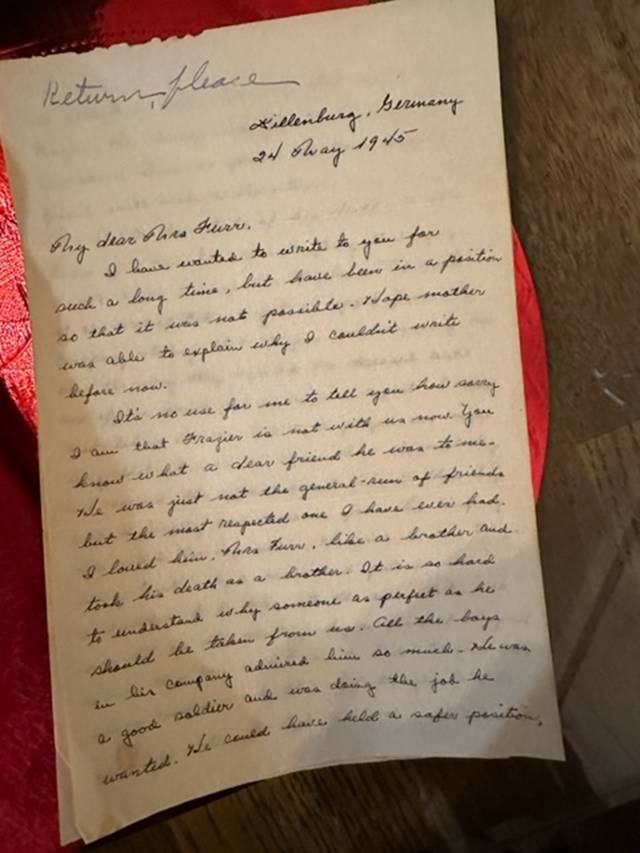 Return, please
Dillenburg, Germany
24 May 1945
My dear Mrs Furr,
I have wanted to write to you for
such a long time, but have been in a position
so that it was not possible. Hope mother
was able to explain why I couldn't write
before now.
It's no use for me to tell you how sorry
I am that Frazier is not with us now. You
know what a dear friend he was to me-
He was just not the general-run of friends
but the most respected one I have ever had.
I loved him, Mrs Furr, like a brother and
took his death as a brother. It is so hard
to understand why someone as perfect as he
should be taken from us. All the boys
in his company admired him so much- He was
a good soldier and was doing the job he
wanted. He could have held a safer position,